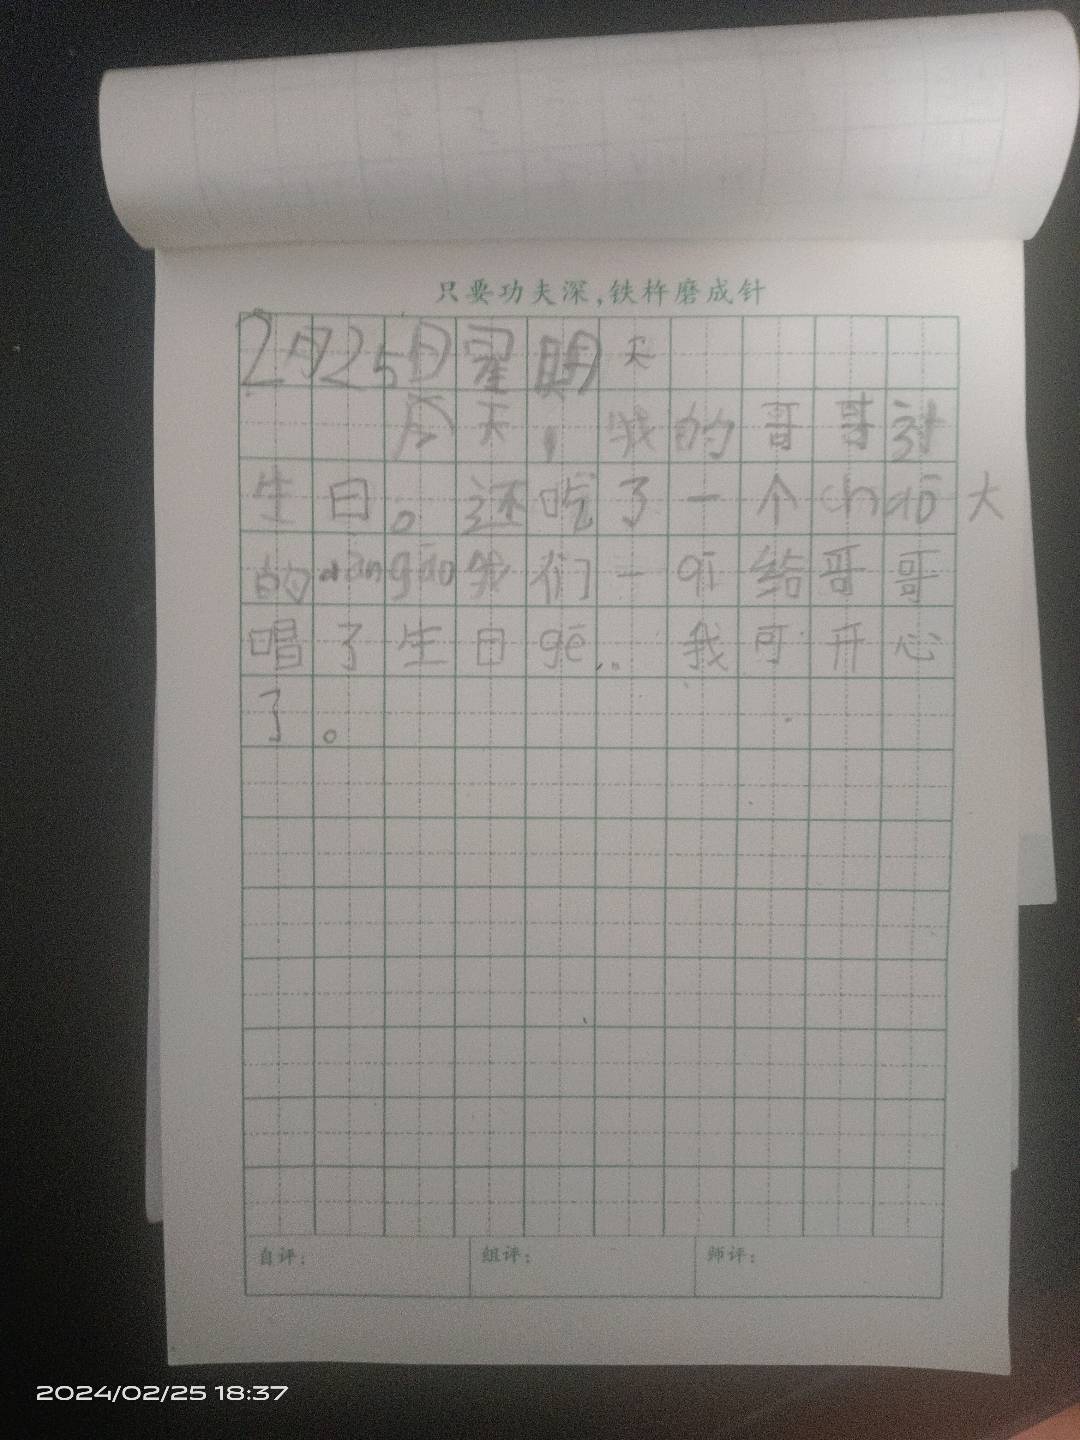 只要功夫深,铁杵磨成针
2月25日星期天
今天,我的哥哥过
生日。还吃了一个chāo大
的dàngāo我们一qǐ给哥哥
唱了生日gē。我可开心
了。
自评: 组评: 师评:
2024/02/25 18:37